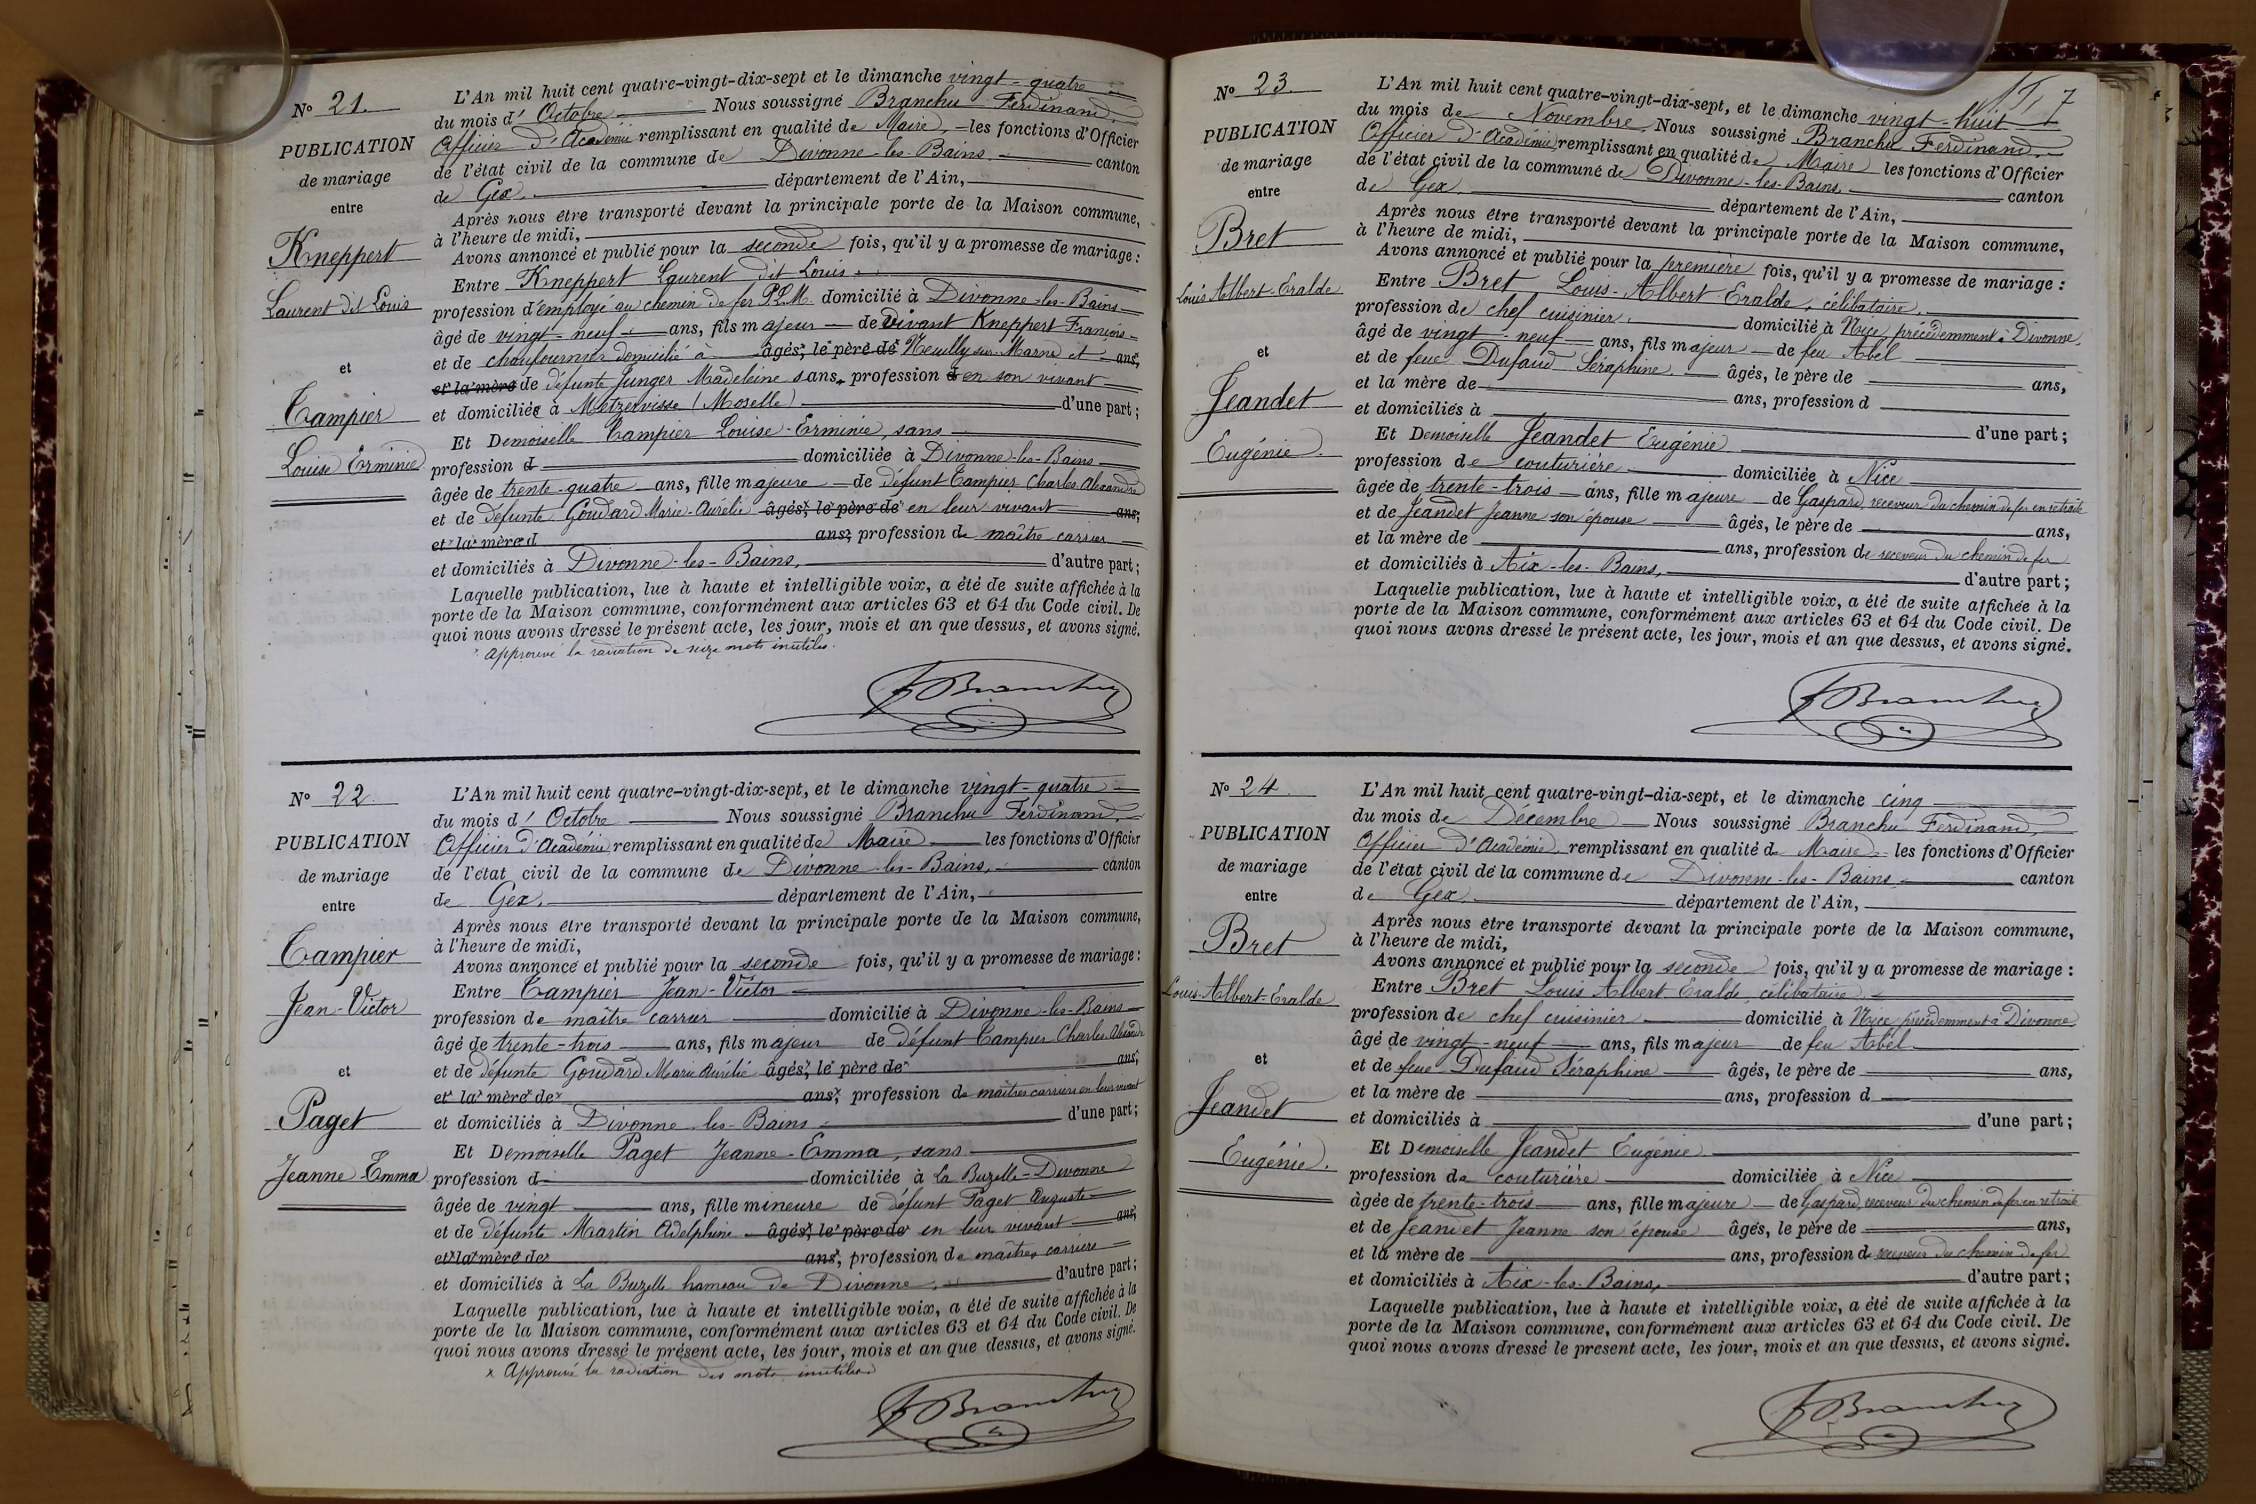 N° 21.
PUBLICATION
de mariage
entre
Kneppert
Laurent dit Louis
et
Campier
Louise Erminie
L'An mil huit cent quatre-vingt-dix-sept et le dimanche vingt-quatre
du mois d' Octobre Nous soussigné Branchu Ferdinand,
Officier d'Académie remplissant en qualité de Maire, les fonctions d'Officier
de l'état civil de la commune de Divonne-les-Bains canton
de Gex. département de l'Ain,
Après nous être transporté devant la principale porte de la Maison commune,
à l'heure de midi,
Avons annoncé et publié pour la seconde fois, qu'il y a promesse de mariage :
Entre Kneppert Laurent dit Louis
profession d'employé au chemin de fer P.L.M. domicilié à Divonne-les-Bains
âgé de vingt-neuf ans, fils majeur de vivant Kneppert François
et de chaufournier domicilié à âgés, le père de Neuilly sur Marne et ans,
et la mère de défunte Junger Madeleine sans, profession d en son vivant
et domiciliée à Metzervisse (Moselle) d'une part ;
Et Demoiselle Campier Louise-Erminie, sans
profession d domiciliée à Divonne-les-Bains
âgée de trente-quatre ans, fille majeure de défunt Campier Charles Alexandre
et de défunte Goudard Marie-Aurélie âgés, le père de en leur vivant ans,
et la mère d ans, profession de maître carrier
et domiciliés à Divonne-les-Bains, d'autre part ;
Laquelle publication, lue à haute et intelligible voix, a été de suite affichée à la
porte de la Maison commune, conformément aux articles 63 et 64 du Code civil. De
quoi nous avons dressé le présent acte, les jour, mois et an que dessus, et avons signé.
Approuvé la radiation de seize mots inutiles.
F Branchu
N° 22.
PUBLICATION
de mariage
entre
Campier
Jean-Victor
et
Paget
Jeanne-Emma
L'An mil huit cent quatre-vingt-dix-sept, et le dimanche vingt-quatre
du mois d' Octobre Nous soussigné Branchu Ferdinand,
Officier d'Académie remplissant en qualité de Maire les fonctions d'Officier
de l'état civil de la commune de Divonne-les-Bains, canton
de Gex, département de l'Ain,
Après nous être transporté devant la principale porte de la Maison commune,
à l'heure de midi,
Avons annoncé et publié pour la seconde fois, qu'il y a promesse de mariage :
Entre Campier Jean-Victor
profession de maître carrier domicilié à Divonne-les-Bains
âgé de trente-trois ans, fils majeur de défunt Campier Charles Alexandre
et de défunte Goudard Marie Aurélie âgés, le père de ans,
et la mère de ans, profession de maîtres carriers en leur vivant
et domiciliés à Divonne-les-Bains d'une part ;
Et Demoiselle Paget Jeanne-Emma, sans
profession d domiciliée à La Buzelle-Divonne
âgée de vingt ans, fille mineure de défunt Paget Auguste
et de défunte Martin Adelphine âgés, le père de en leur vivant ans,
et la mère de ans, profession de maîtres carriers
et domiciliés à La Buzelle hameau de Divonne, d'autre part ;
Laquelle publication, lue à haute et intelligible voix, a été de suite affichée à la
porte de la Maison commune, conformément aux articles 63 et 64 du Code civil. De
quoi nous avons dressé le présent acte, les jour, mois et an que dessus, et avons signé.
x Approuvé la radiation des mots inutiles
F Branchu
7
N° 23.
PUBLICATION
de mariage
entre
Bret
Louis Albert-Eralde
et
Jeandet
Eugénie.
L'An mil huit cent quatre-vingt-dix-sept, et le dimanche vingt-huit
du mois de Novembre. Nous soussigné Branchu Ferdinand,
Officier d'Académie remplissant en qualité de Maire les fonctions d'Officier
de l'état civil de la commune de Divonne-les-Bains canton
de Gex département de l'Ain,
Après nous être transporté devant la principale porte de la Maison commune,
à l'heure de midi,
Avons annoncé et publié pour la première fois, qu'il y a promesse de mariage :
Entre Bret Louis-Albert-Eralde, célibataire
profession de chef cuisinier domicilié à Nice précédemment à Divonne
âgé de vingt-neuf ans, fils majeur de feu Abel
et de feue Dufaud Séraphine. âgés, le père de ans,
et la mère de ans, profession d
et domiciliés à d'une part ;
Et Demoiselle Jeandet Eugénie
profession de couturière domiciliée à Nice
âgée de trente-trois ans, fille majeure de Gaspard, receveur du chemin de fer en retraite
et de Jeandet Jeanne son épouse âgés, le père de ans,
et la mère de ans, profession de receveur du chemin de fer
et domiciliés à Aix-les-Bains, d'autre part ;
Laquelle publication, lue à haute et intelligible voix, a été de suite affichée à la
porte de la Maison commune, conformément aux articles 63 et 64 du Code civil. De
quoi nous avons dressé le présent acte, les jour, mois et an que dessus, et avons signé.
F Branchu
N° 24.
PUBLICATION
de mariage
entre
Bret
Louis-Albert-Eralde
et
Jeandet
Eugénie.
L'An mil huit cent quatre-vingt-dix-sept, et le dimanche cinq
du mois de Décembre Nous soussigné Branchu Ferdinand,
Officier d'Académie remplissant en qualité de Maire les fonctions d'Officier
de l'état civil de la commune de Divonne-les-Bains canton
de Gex département de l'Ain,
Après nous être transporté devant la principale porte de la Maison commune,
à l'heure de midi,
Avons annoncé et publié pour la seconde fois, qu'il y a promesse de mariage :
Entre Bret Louis Albert Eralde, célibataire
profession de chef cuisinier domicilié à Nice précédemment à Divonne
âgé de vingt-neuf ans, fils majeur de feu Abel
et de feue Dufaud Séraphine âgés, le père de ans,
et la mère de ans, profession d
et domiciliés à d'une part ;
Et Demoiselle Jeandet Eugénie
profession de couturière domiciliée à Nice
âgée de trente-trois ans, fille majeure de Gaspard, receveur du chemin de fer en retraite
et de Jeandet Jeanne son épouse âgés, le père de ans,
et la mère de ans, profession de receveur du chemin de fer
et domiciliés à Aix-les-Bains, d'autre part ;
Laquelle publication, lue à haute et intelligible voix, a été de suite affichée à la
porte de la Maison commune, conformément aux articles 63 et 64 du Code civil. De
quoi nous avons dressé le présent acte, les jour, mois et an que dessus, et avons signé.
F Branchu